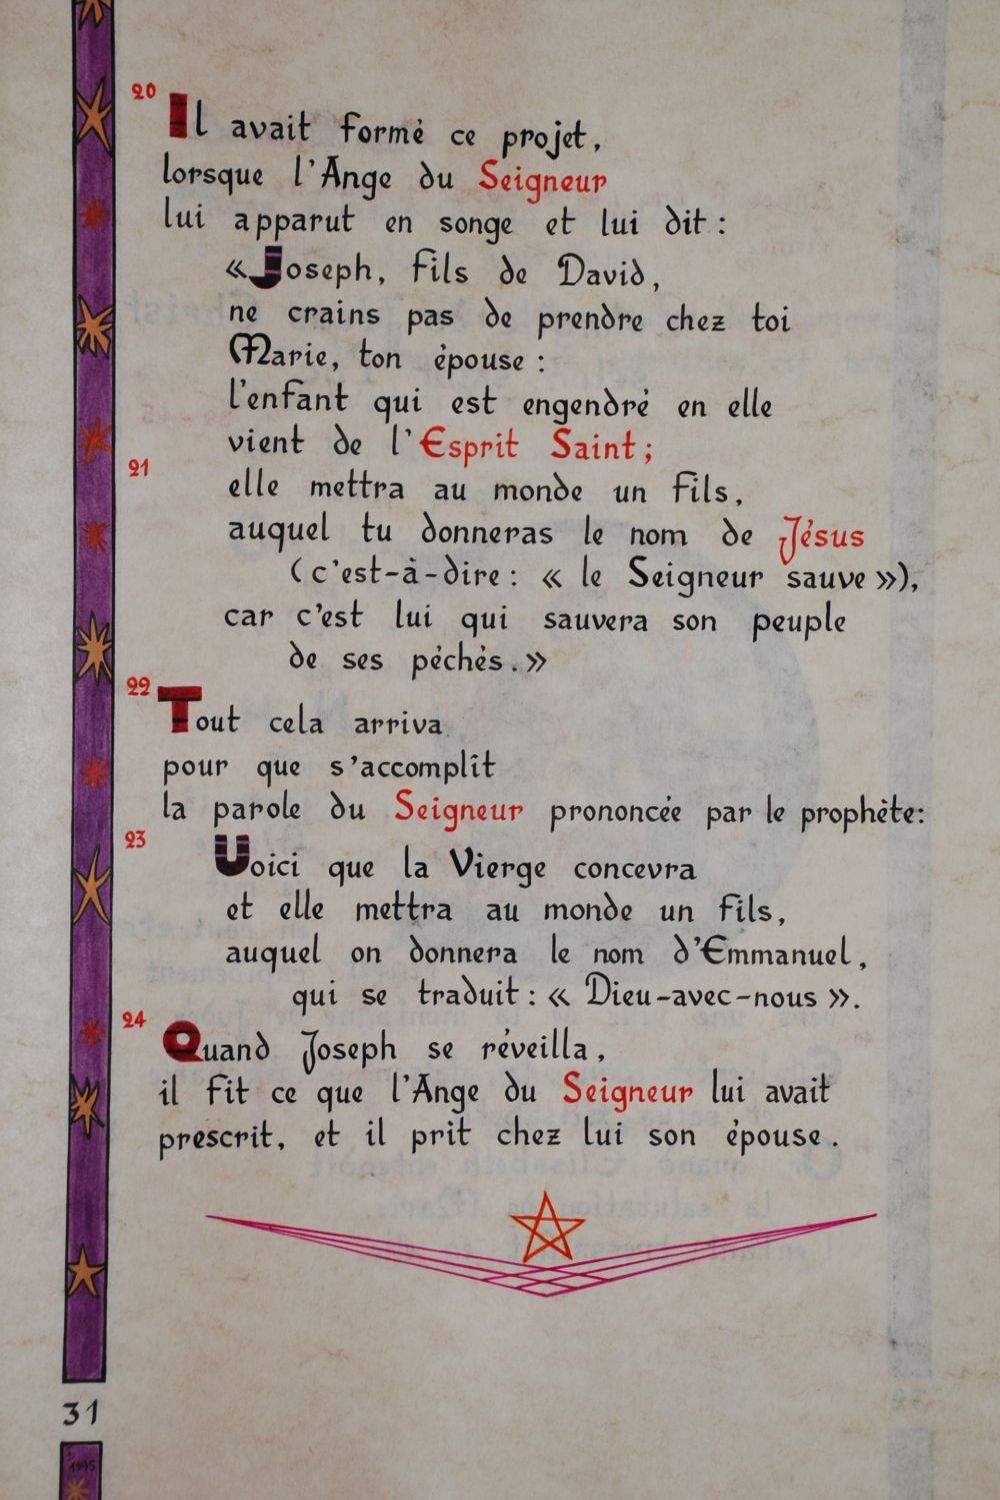 20
Il avait formé ce projet,
lorsque l'Ange du Seigneur
lui apparut en songe et lui dit :
« Joseph, fils de David,
ne crains pas de prendre chez toi
Marie, ton épouse :
l'enfant qui est engendré en elle
vient de l'Esprit Saint ;
21
elle mettra au monde un fils,
auquel tu donneras le nom de Jésus
(c'est-à-dire : « le Seigneur sauve »),
car c'est lui qui sauvera son peuple
de ses péchés. »
22
Tout cela arriva
pour que s'accomplît
la parole du Seigneur prononcée par le prophète:
23
Voici que la Vierge concevra
et elle mettra au monde un fils,
auquel on donnera le nom d'Emmanuel,
qui se traduit : « Dieu-avec-nous ».
24
Quand Joseph se réveilla,
il fit ce que l'Ange du Seigneur lui avait
prescrit, et il prit chez lui son épouse.
31
1995